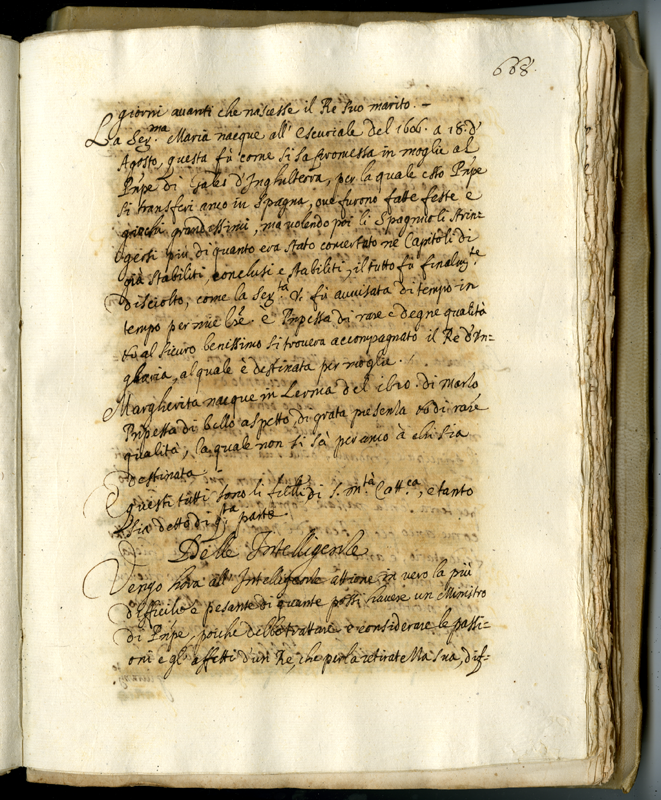 668.
giorni avanti che nascesse il Re suo marito. –
La Ser.ma Maria nacque all'Escuriale del 1606. a 18. d'
Agosto, questa fù come si sa promessa in moglie al
Pnpe di Gales d'Inghilterra, per la quale esso Pnpe
si transferì anco in Spagna, ove furono fatte feste e
giochi grandissimi, ma volendo poi li Spagnioli strin-
gersi più di quanto era stato concertato nè Capitoli di
già stabiliti, conclusi e stabiliti, il tutto fù finalmte
disciolto, come la Ser.tà V. fù avvisata di tempo in
tempo per mie lre e Pnpessa di rare e degne qualità
et al sicuro benissimo si troverà accompagnato il Re d'Un-
gharia, al quale è destinata per moglie. /
Margherita nacque in Lerma del 1610. di Marzo
Pnpessa di bello aspetto di grata presenza et di rare
qualità, la quale non si sà per anco à chi sia
destinata –
E questi tutti sono li figli di S. Mtà Catt.ca, e tanto
sia detto di qsta parte.
Delle Intelligenze
Vengo hora all'Intelligenze attione in vero la più
difficile e pesante di quante possi havere un Ministro
di Pnpe, poiche debbe trattare e considerare le passi-
oni e gl'affetti d'un Re, che per la retiratezza sua, dif-